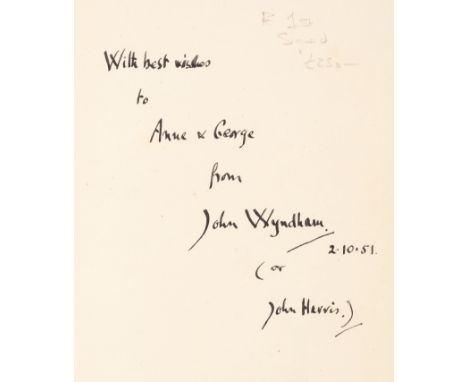 Signed
£250—
With best wishes
to
Anne & George
from
John Wyndham.
2.10.51.
(or
John Harris.)